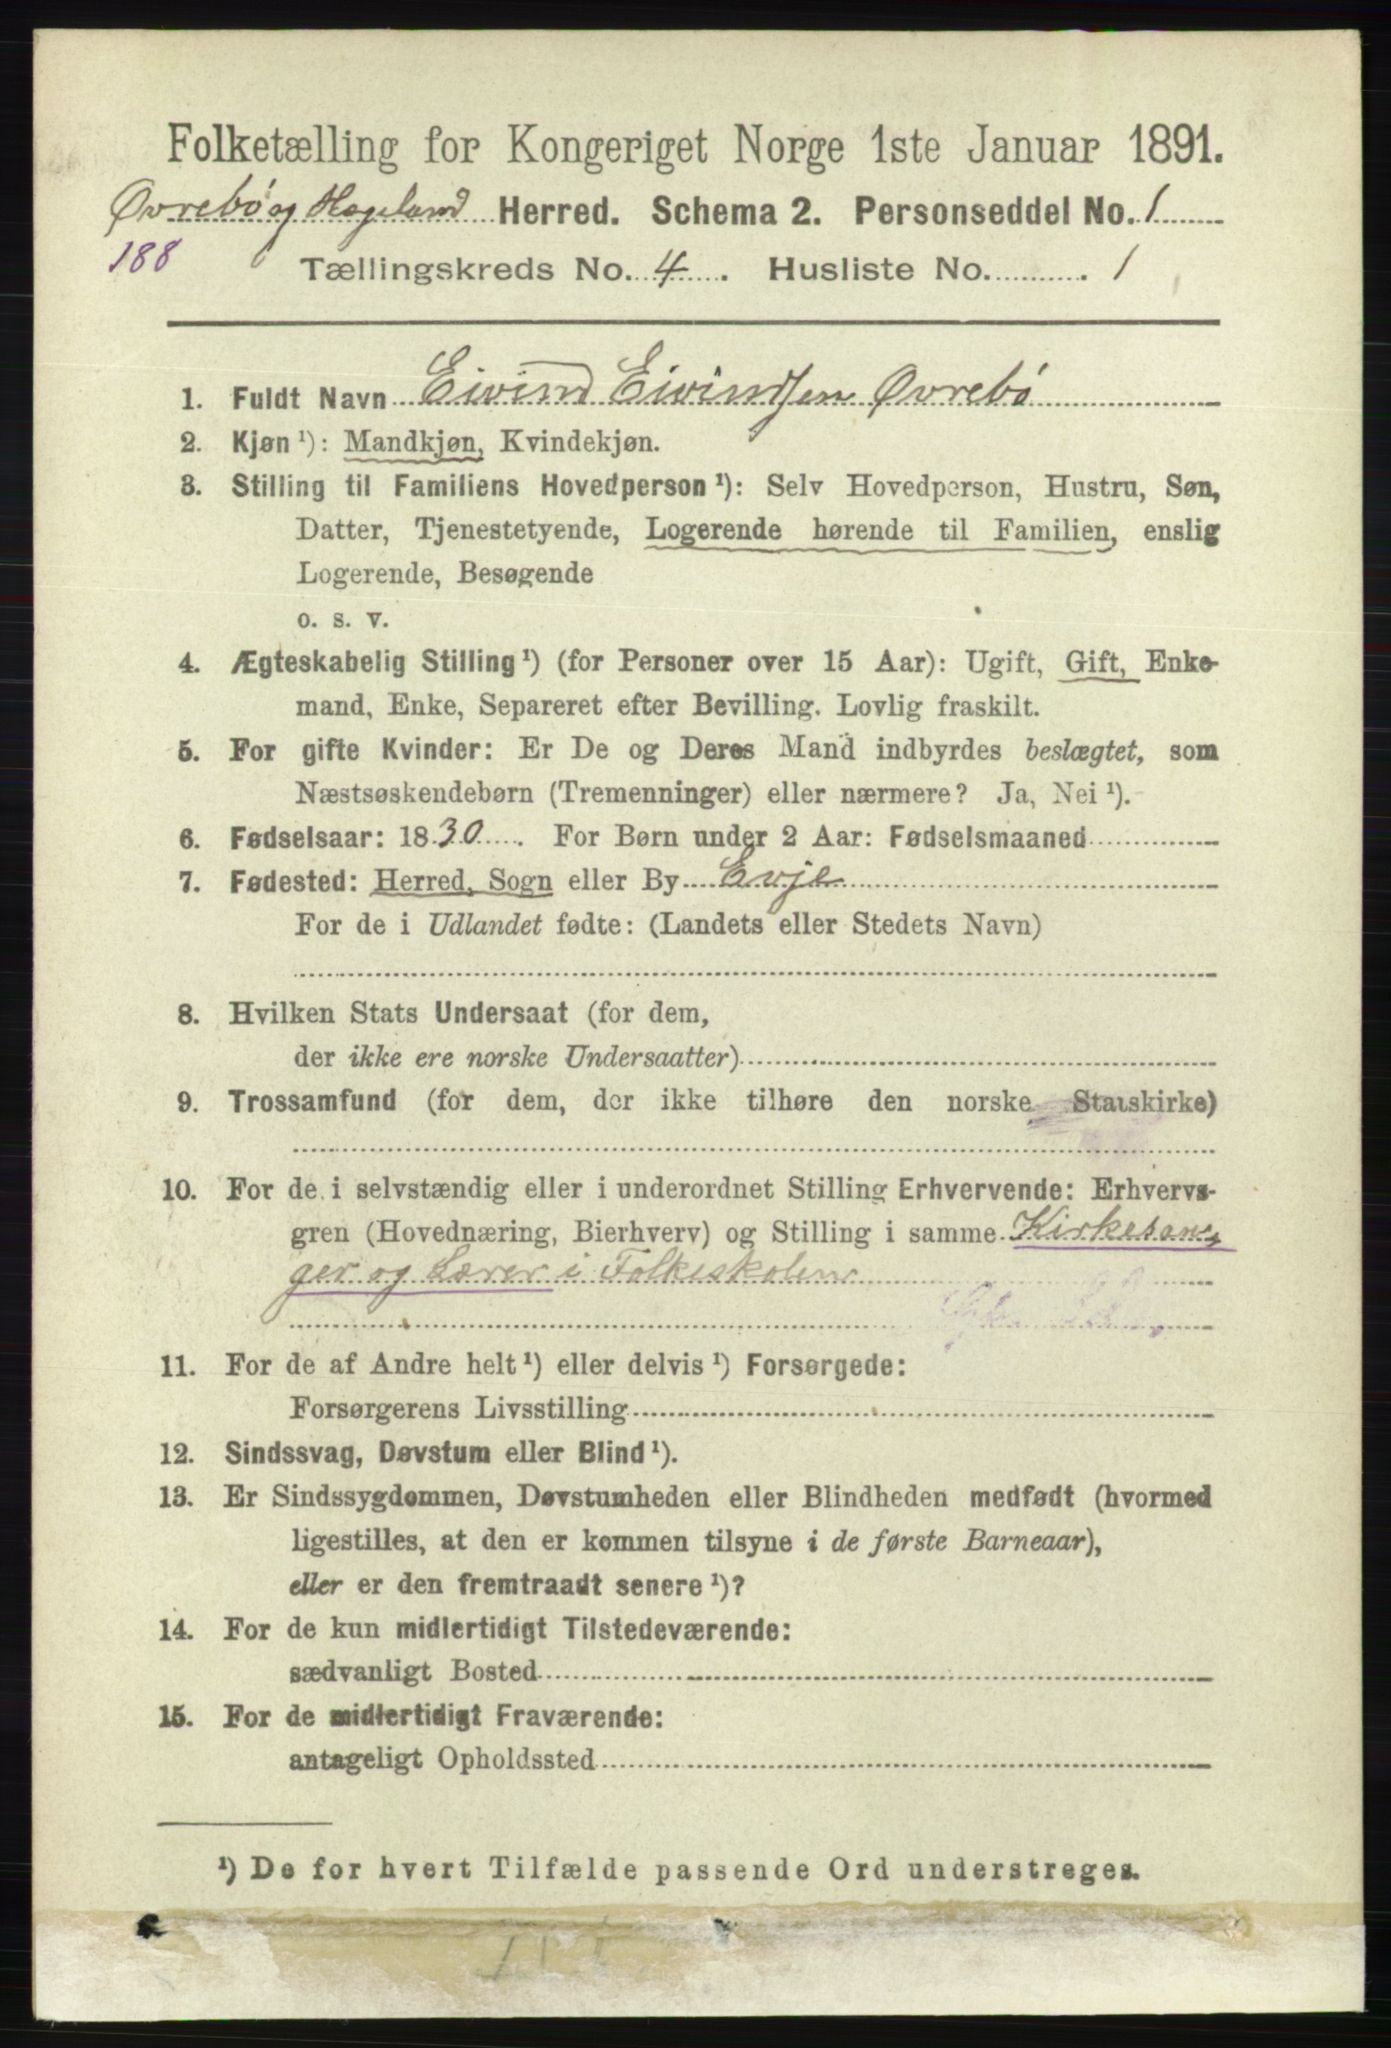 Folketælling for Kongeriget Norge 1ste Januar 1891.
Øvrebø og Hægeland Herred. Schema 2. Personseddel No. 1
188
Tællingskreds No. 4. Husliste No. 1
1. Fuldt Navn Eivind Eivindsen Øvrebö
2. Kjøn ¹): Mandkjøn, Kvindekjøn.
3. Stilling til Familiens Hovedperson ¹): Selv Hovedperson, Hustru, Søn,
Datter, Tjenestetyende, Logerende hørende til Familien, enslig
Logerende, Besøgende
o. s. v.
4. Ægteskabelig Stilling ¹) (for Personer over 15 Aar): Ugift, Gift, Enke-
mand, Enke, Separeret efter Bevilling. Lovlig fraskilt.
5. For gifte Kvinder: Er De og Deres Mand indbyrdes beslægtet, som
Næstsøskendebørn (Tremenninger) eller nærmere? Ja, Nei ¹).
6. Fødselsaar: 1830. For Børn under 2 Aar: Fødselsmaaned
7. Fødested: Herred, Sogn eller By Evje
For de i Udlandet fødte: (Landets eller Stedets Navn)
8. Hvilken Stats Undersaat (for dem,
der ikke ere norske Undersaatter)
9. Trossamfund (for dem, der ikke tilhøre den norske Statskirke)
10. For de i selvstændig eller i underordnet Stilling Erhvervende: Erhvervs-
gren (Hovednæring, Bierhverv) og Stilling i samme Kirkesan-
ger og Lærer i Folkeskolen
11. For de af Andre helt ¹) eller delvis ¹) Forsørgede:
Forsørgerens Livsstilling
12. Sindssvag, Døvstum eller Blind ¹).
13. Er Sindssygdommen, Døvstumheden eller Blindheden medfødt (hvormed
ligestilles, at den er kommen tilsyne i de første Barneaar),
eller er den fremtraadt senere ¹)?
14. For de kun midlertidigt Tilstedeværende:
sædvanligt Bosted
15. For de midlertidigt Fraværende:
antageligt Opholdssted
¹) De for hvert Tilfælde passende Ord understreges.